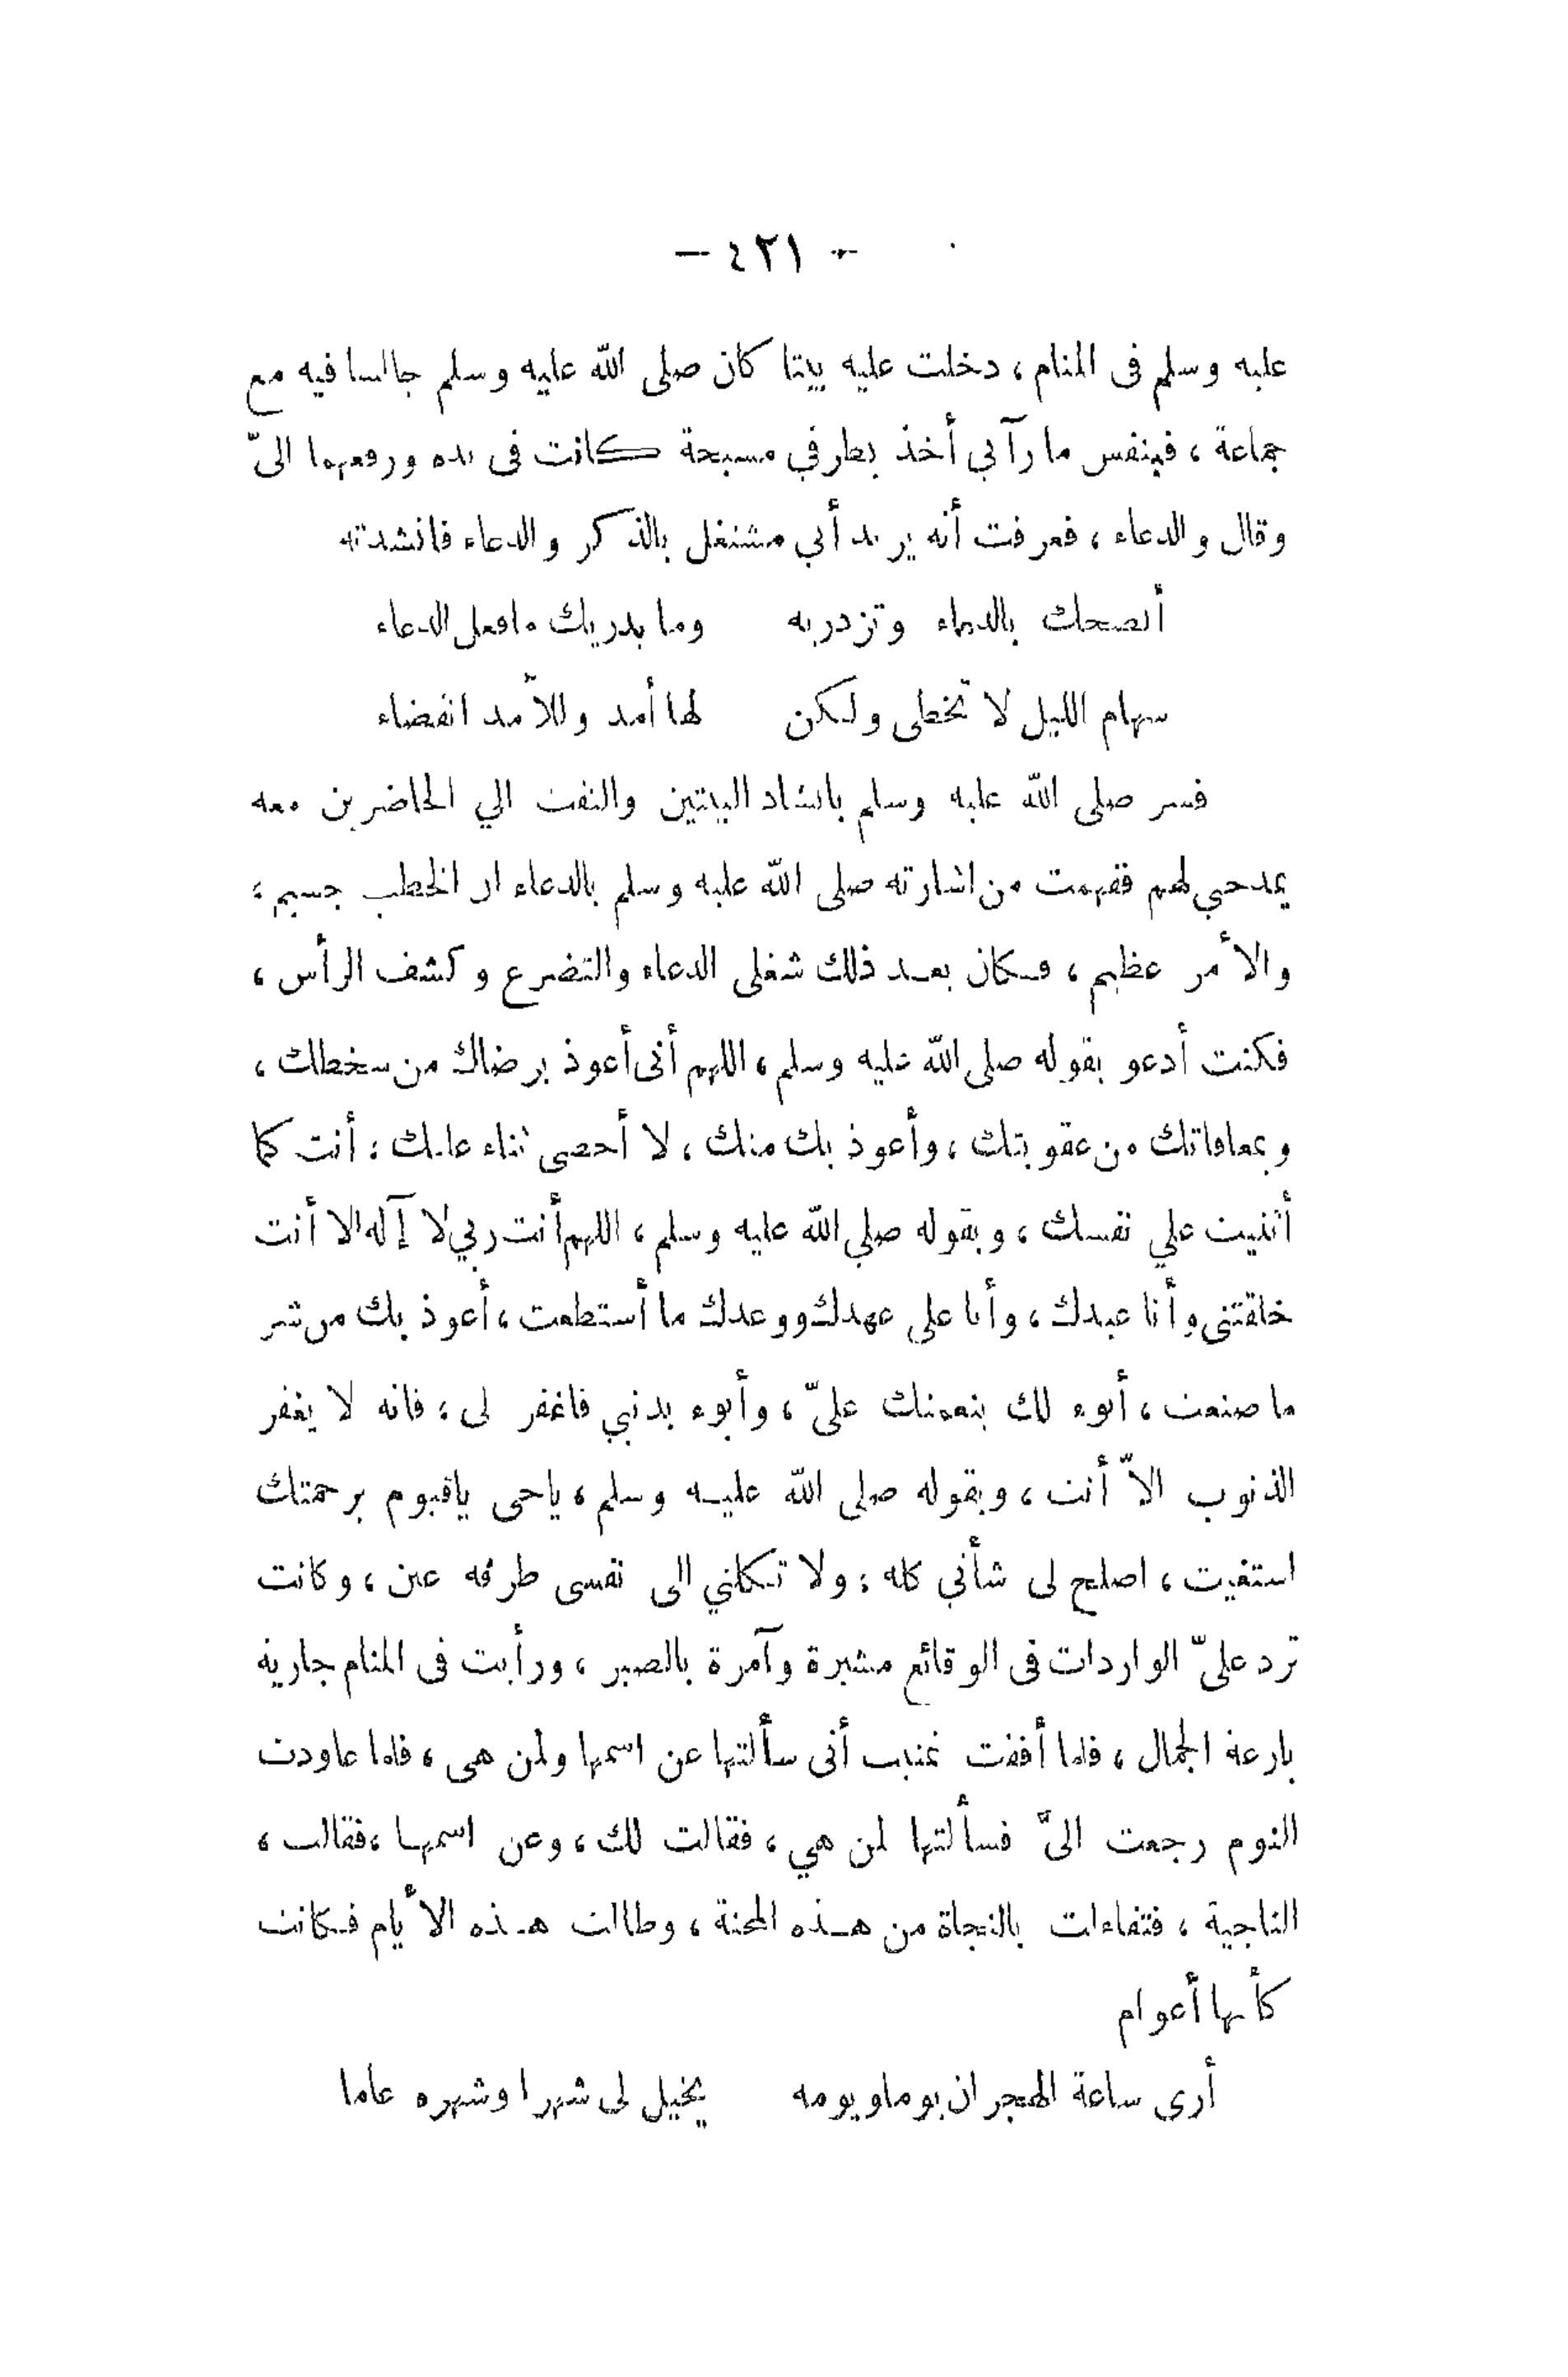 — ٤٢١ —
عليه وسلم فى المنام ، دخلت عليه بيتا كان صلى الله عليه وسلم جالسا فيه مع
جماعة ، فبنفس ما رآني أخذ بطرفي مسبحة كانت فى يده ورفعهما الىّ
وقال والدعاء ، فعرفت أنه يريد أني مشتغل بالذكر والدعاء فانشدته
أتضحك بالدعاء وتزدريه وما يدريك مافعل الدعاء
سهام الليل لا تخطى ولكن لها أمد وللأمد انقضاء
فسر صلى الله عليه وسلم بانشاد البيتين والتفت الي الحاضرين معه
يمدحني لهم ففهمت من اشارته صلى الله عليه وسلم بالدعاء ان الخطب جسيم ،
والأمر عظيم ، فكان بعد ذلك شغلى الدعاء والتضرع وكشف الرأس ،
فكنت أدعو بقوله صلى الله عليه وسلم ، اللهم أنى أعوذ برضاك من سخطك ،
وبمعافاتك من عقوبتك ، وأعوذ بك منك ، لا أحصى ثناء عليك ، أنت كما
أثنيت علي نفسك ، وبقوله صلي الله عليه وسلم ، اللهم أنت ربي لا إله الا أنت
خلقتنى وأنا عبدك ، وأنا على عهدك ووعدك ما أستطعت ، أعوذ بك من شر
ما صنعت ، أبوء لك بنعمتك علىّ ، وأبوء بذنبي فاغفر لى ، فانه لا يغفر
الذنوب الاّ أنت ، وبقوله صلى الله عليه وسلم ، ياحى ياقيوم برحمتك
استغيث ، اصلح لى شأني كله ، ولا تكلني الى نفسى طرفه عين ، وكانت
ترد علىّ الواردات فى الوقائع مشبرة وآمرة بالصبر ، ورأيت فى المنام جارية
بارعة الجمال ، فلما أفقت تمنيت أنى سألتها عن اسمها ولمن هى ، فلما عاودت
النوم رجعت الىّ فسألتها لمن هي ، فقالت لك ، وعن اسمها ،فقالت ،
الناجية ، فتفاءلت بالنجاة من هذه المحنة ، وطالت هذه الأيام فكانت
كأنها أعوام
أرى ساعة الهجران يوما ويومه يخيل لى شهرا وشهره عاما